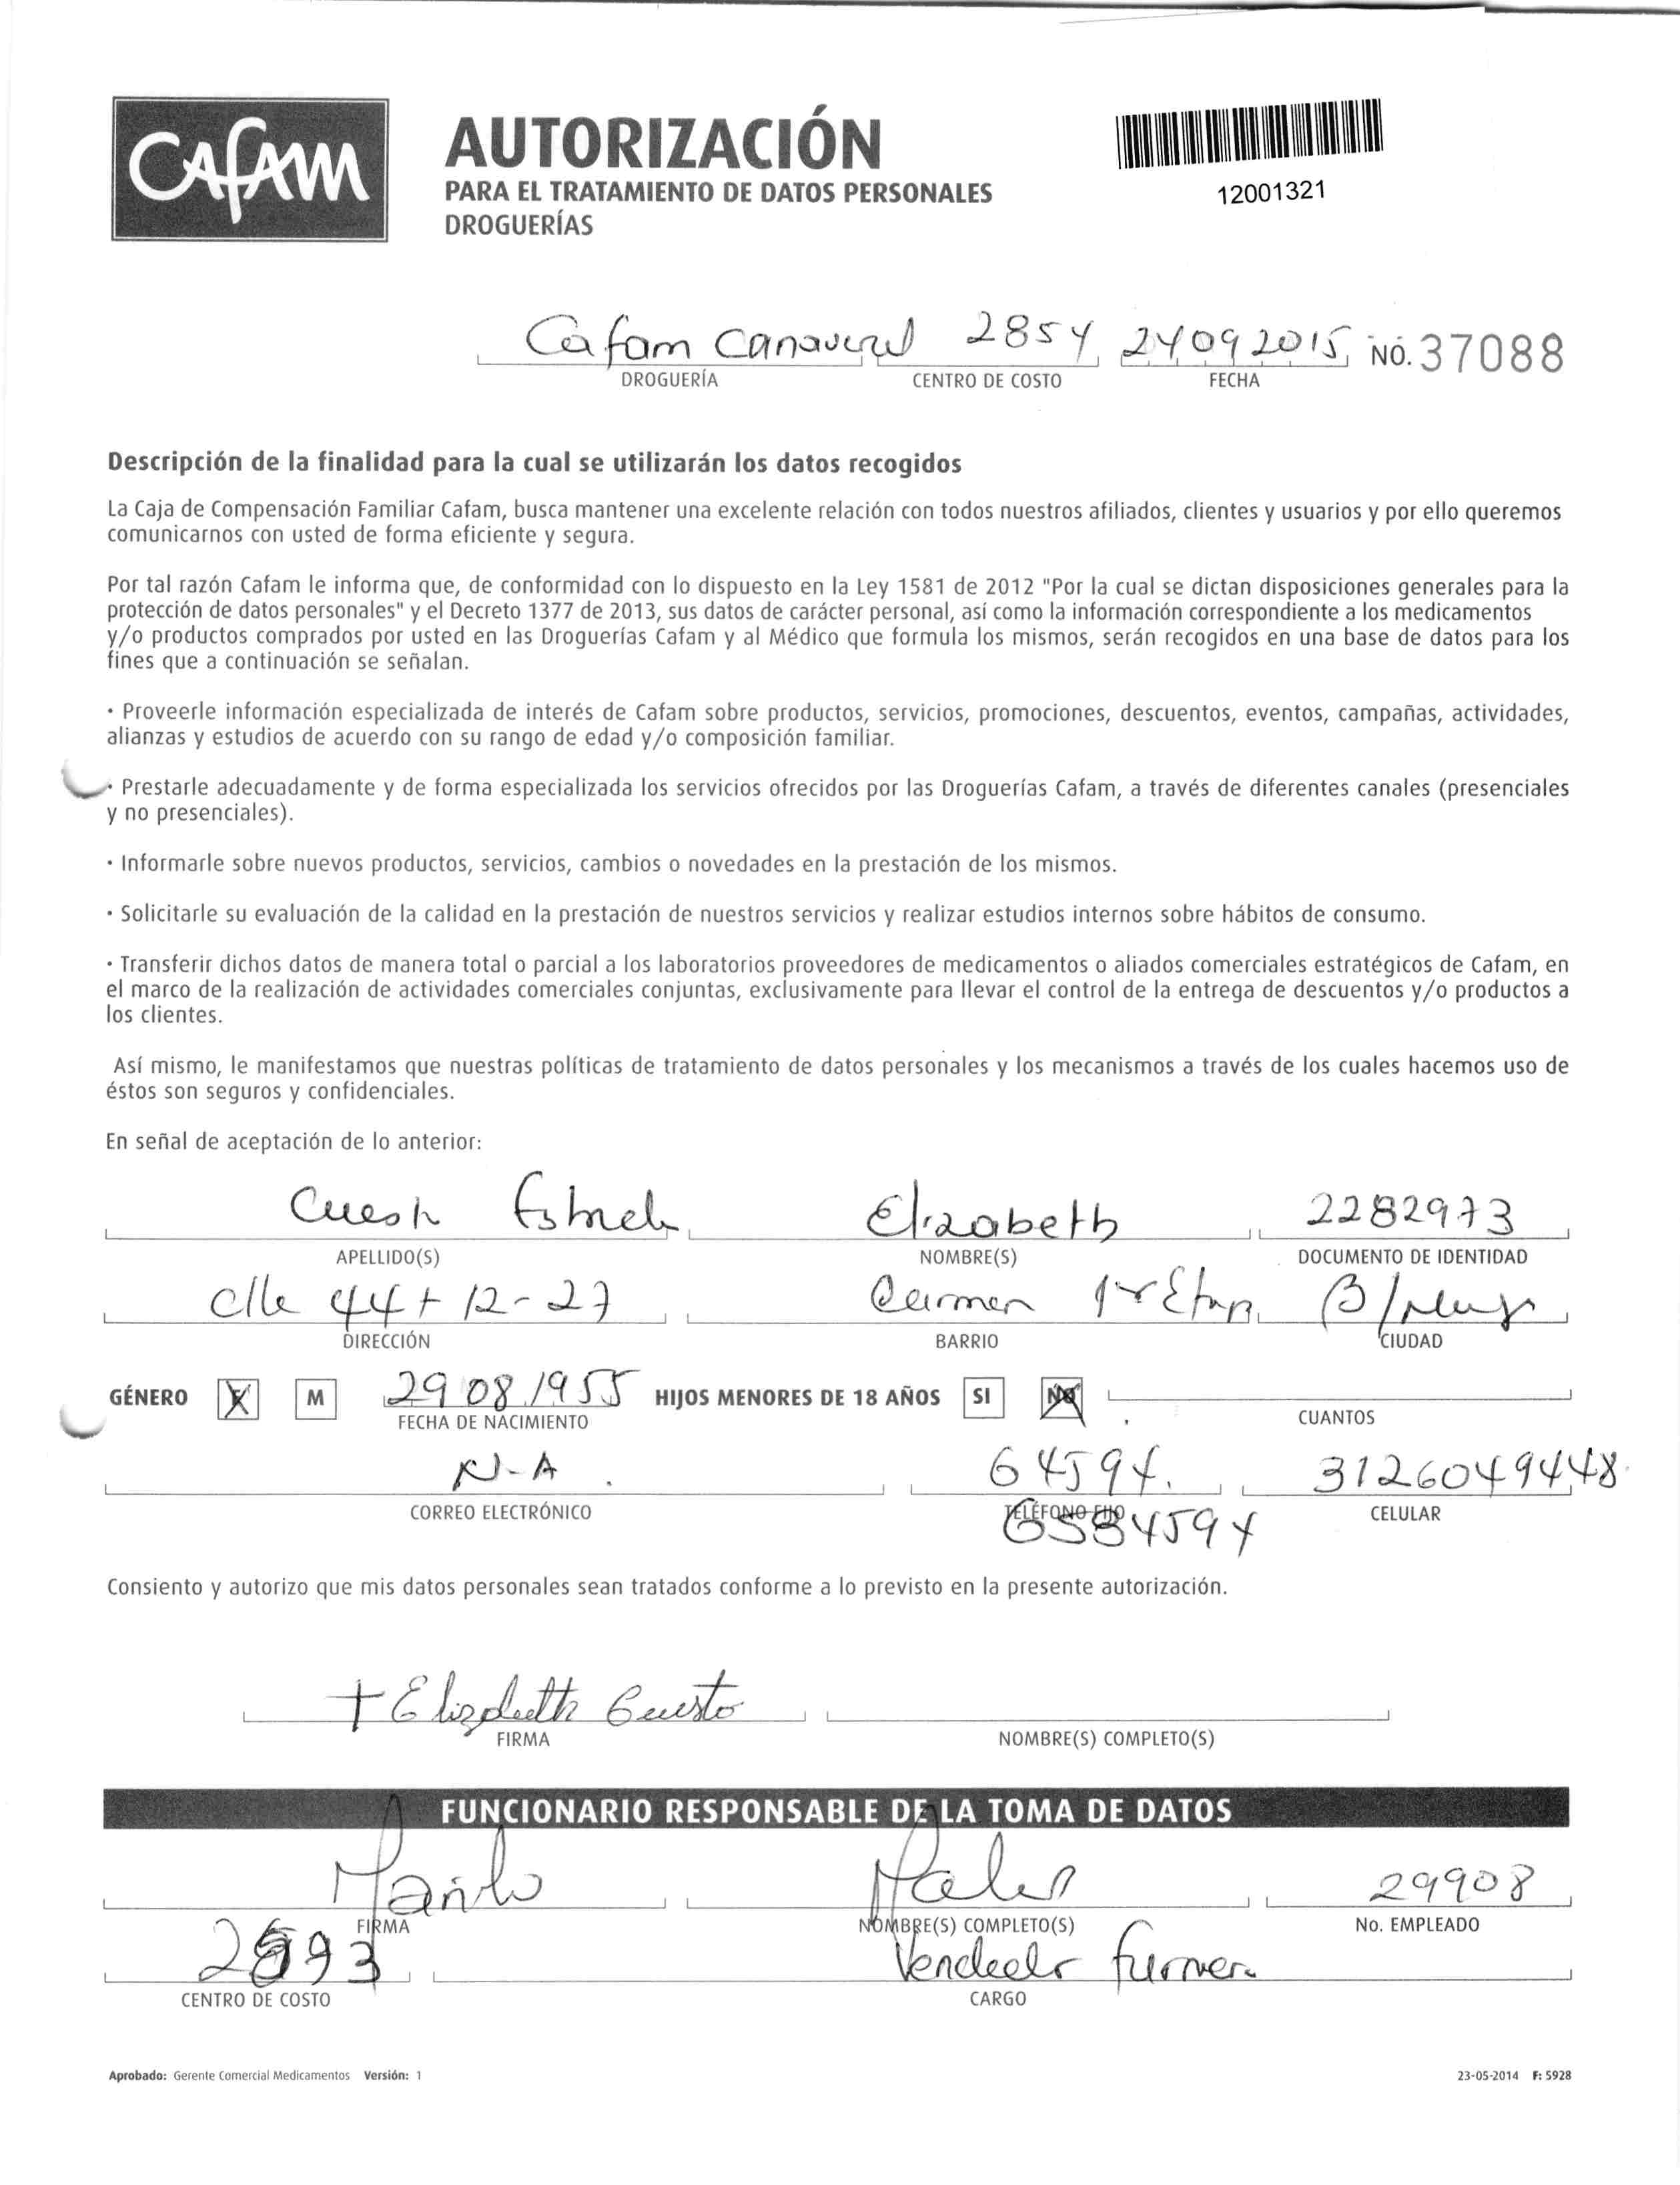 CAfAM
AUTORIZACIÓN
PARA EL TRATAMIENTO DE DATOS PERSONALES
DROGUERÍAS
12001321
Cafam Canaveral 2854 24092015 NO. 37088
DROGUERÍA CENTRO DE COSTO FECHA
Descripción de la finalidad para la cual se utilizarán los datos recogidos
La Caja de Compensación Familiar Cafam, busca mantener una excelente relación con todos nuestros afiliados, clientes y usuarios y por ello queremos
comunicarnos con usted de forma eficiente y segura.
Por tal razón Cafam le informa que, de conformidad con lo dispuesto en la Ley 1581 de 2012 "Por la cual se dictan disposiciones generales para la
protección de datos personales" y el Decreto 1377 de 2013, sus datos de carácter personal, así como la información correspondiente a los medicamentos
y/o productos comprados por usted en las Droguerías Cafam y al Médico que formula los mismos, serán recogidos en una base de datos para los
fines que a continuación se señalan.
· Proveerle información especializada de interés de Cafam sobre productos, servicios, promociones, descuentos, eventos, campañas, actividades,
alianzas y estudios de acuerdo con su rango de edad y/o composición familiar.
· Prestarle adecuadamente y de forma especializada los servicios ofrecidos por las Droguerías Cafam, a través de diferentes canales (presenciales
y no presenciales).
· Informarle sobre nuevos productos, servicios, cambios o novedades en la prestación de los mismos.
· Solicitarle su evaluación de la calidad en la prestación de nuestros servicios y realizar estudios internos sobre hábitos de consumo.
· Transferir dichos datos de manera total o parcial a los laboratorios proveedores de medicamentos o aliados comerciales estratégicos de Cafam, en
el marco de la realización de actividades comerciales conjuntas, exclusivamente para llevar el control de la entrega de descuentos y/o productos a
los clientes.
Así mismo, le manifestamos que nuestras políticas de tratamiento de datos personales y los mecanismos a través de los cuales hacemos uso de
éstos son seguros y confidenciales.
En señal de aceptación de lo anterior:
Cuesta Estrella Elizabeth 2282973
APELLIDO(S) NOMBRE(S) DOCUMENTO DE IDENTIDAD
clle 44 + 12-27 Carmen 1r Etapa B/
DIRECCIÓN BARRIO CIUDAD
GÉNERO F M 29 08 1955 HIJOS MENORES DE 18 AÑOS SI NO
FECHA DE NACIMIENTO CUANTOS
N-A 64594. 3126049448
CORREO ELECTRÓNICO TELÉFONO FIJO CELULAR
6584594
Consiento y autorizo que mis datos personales sean tratados conforme a lo previsto en la presente autorización.
+ Elizabeth Cuesta
FIRMA NOMBRE(S) COMPLETO(S)
FUNCIONARIO RESPONSABLE DE LA TOMA DE DATOS
29908
FIRMA NOMBRE(S) COMPLETO(S) No. EMPLEADO
2893
CENTRO DE COSTO CARGO
Aprobado: Gerente Comercial Medicamentos Versión: 1 23-05-2014 F: 5928